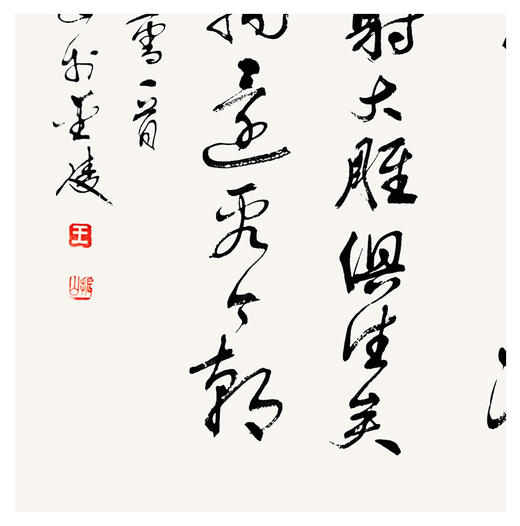 射大雕俱往矣
还看今朝
雪一首
於金陵
王